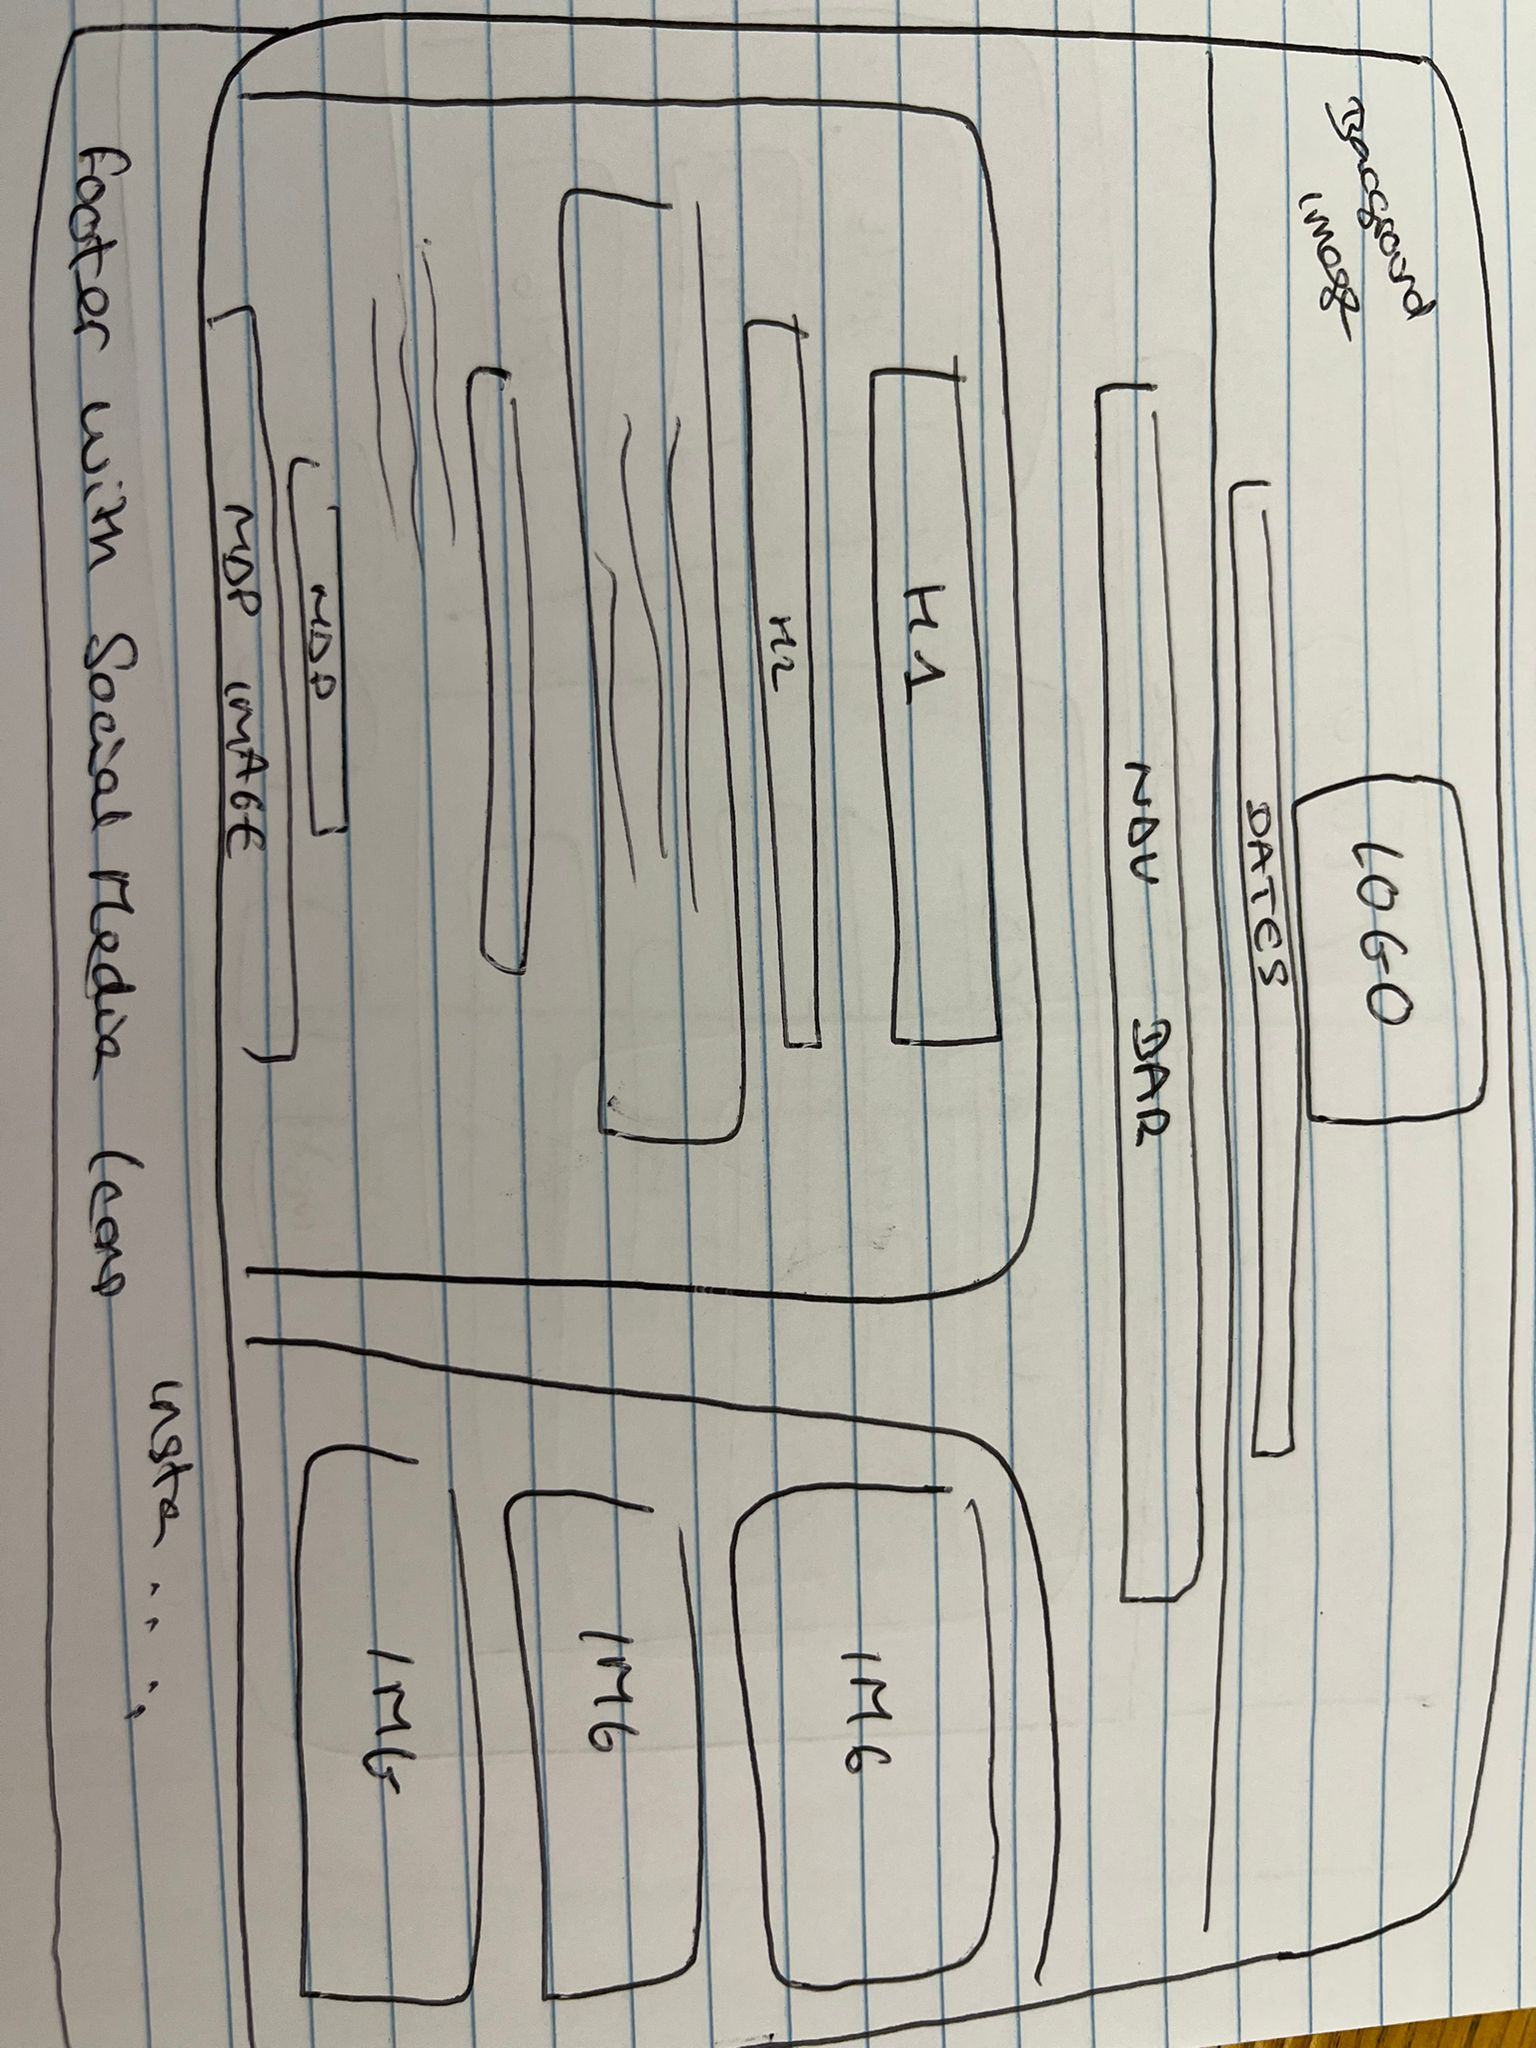 Bacground
image
LOGO
DATES
NAV BAR
H1
IMG
H2
IMG
IMG
MAP
MAP IMAGE
insta .. ..
footer with Social Media Icons